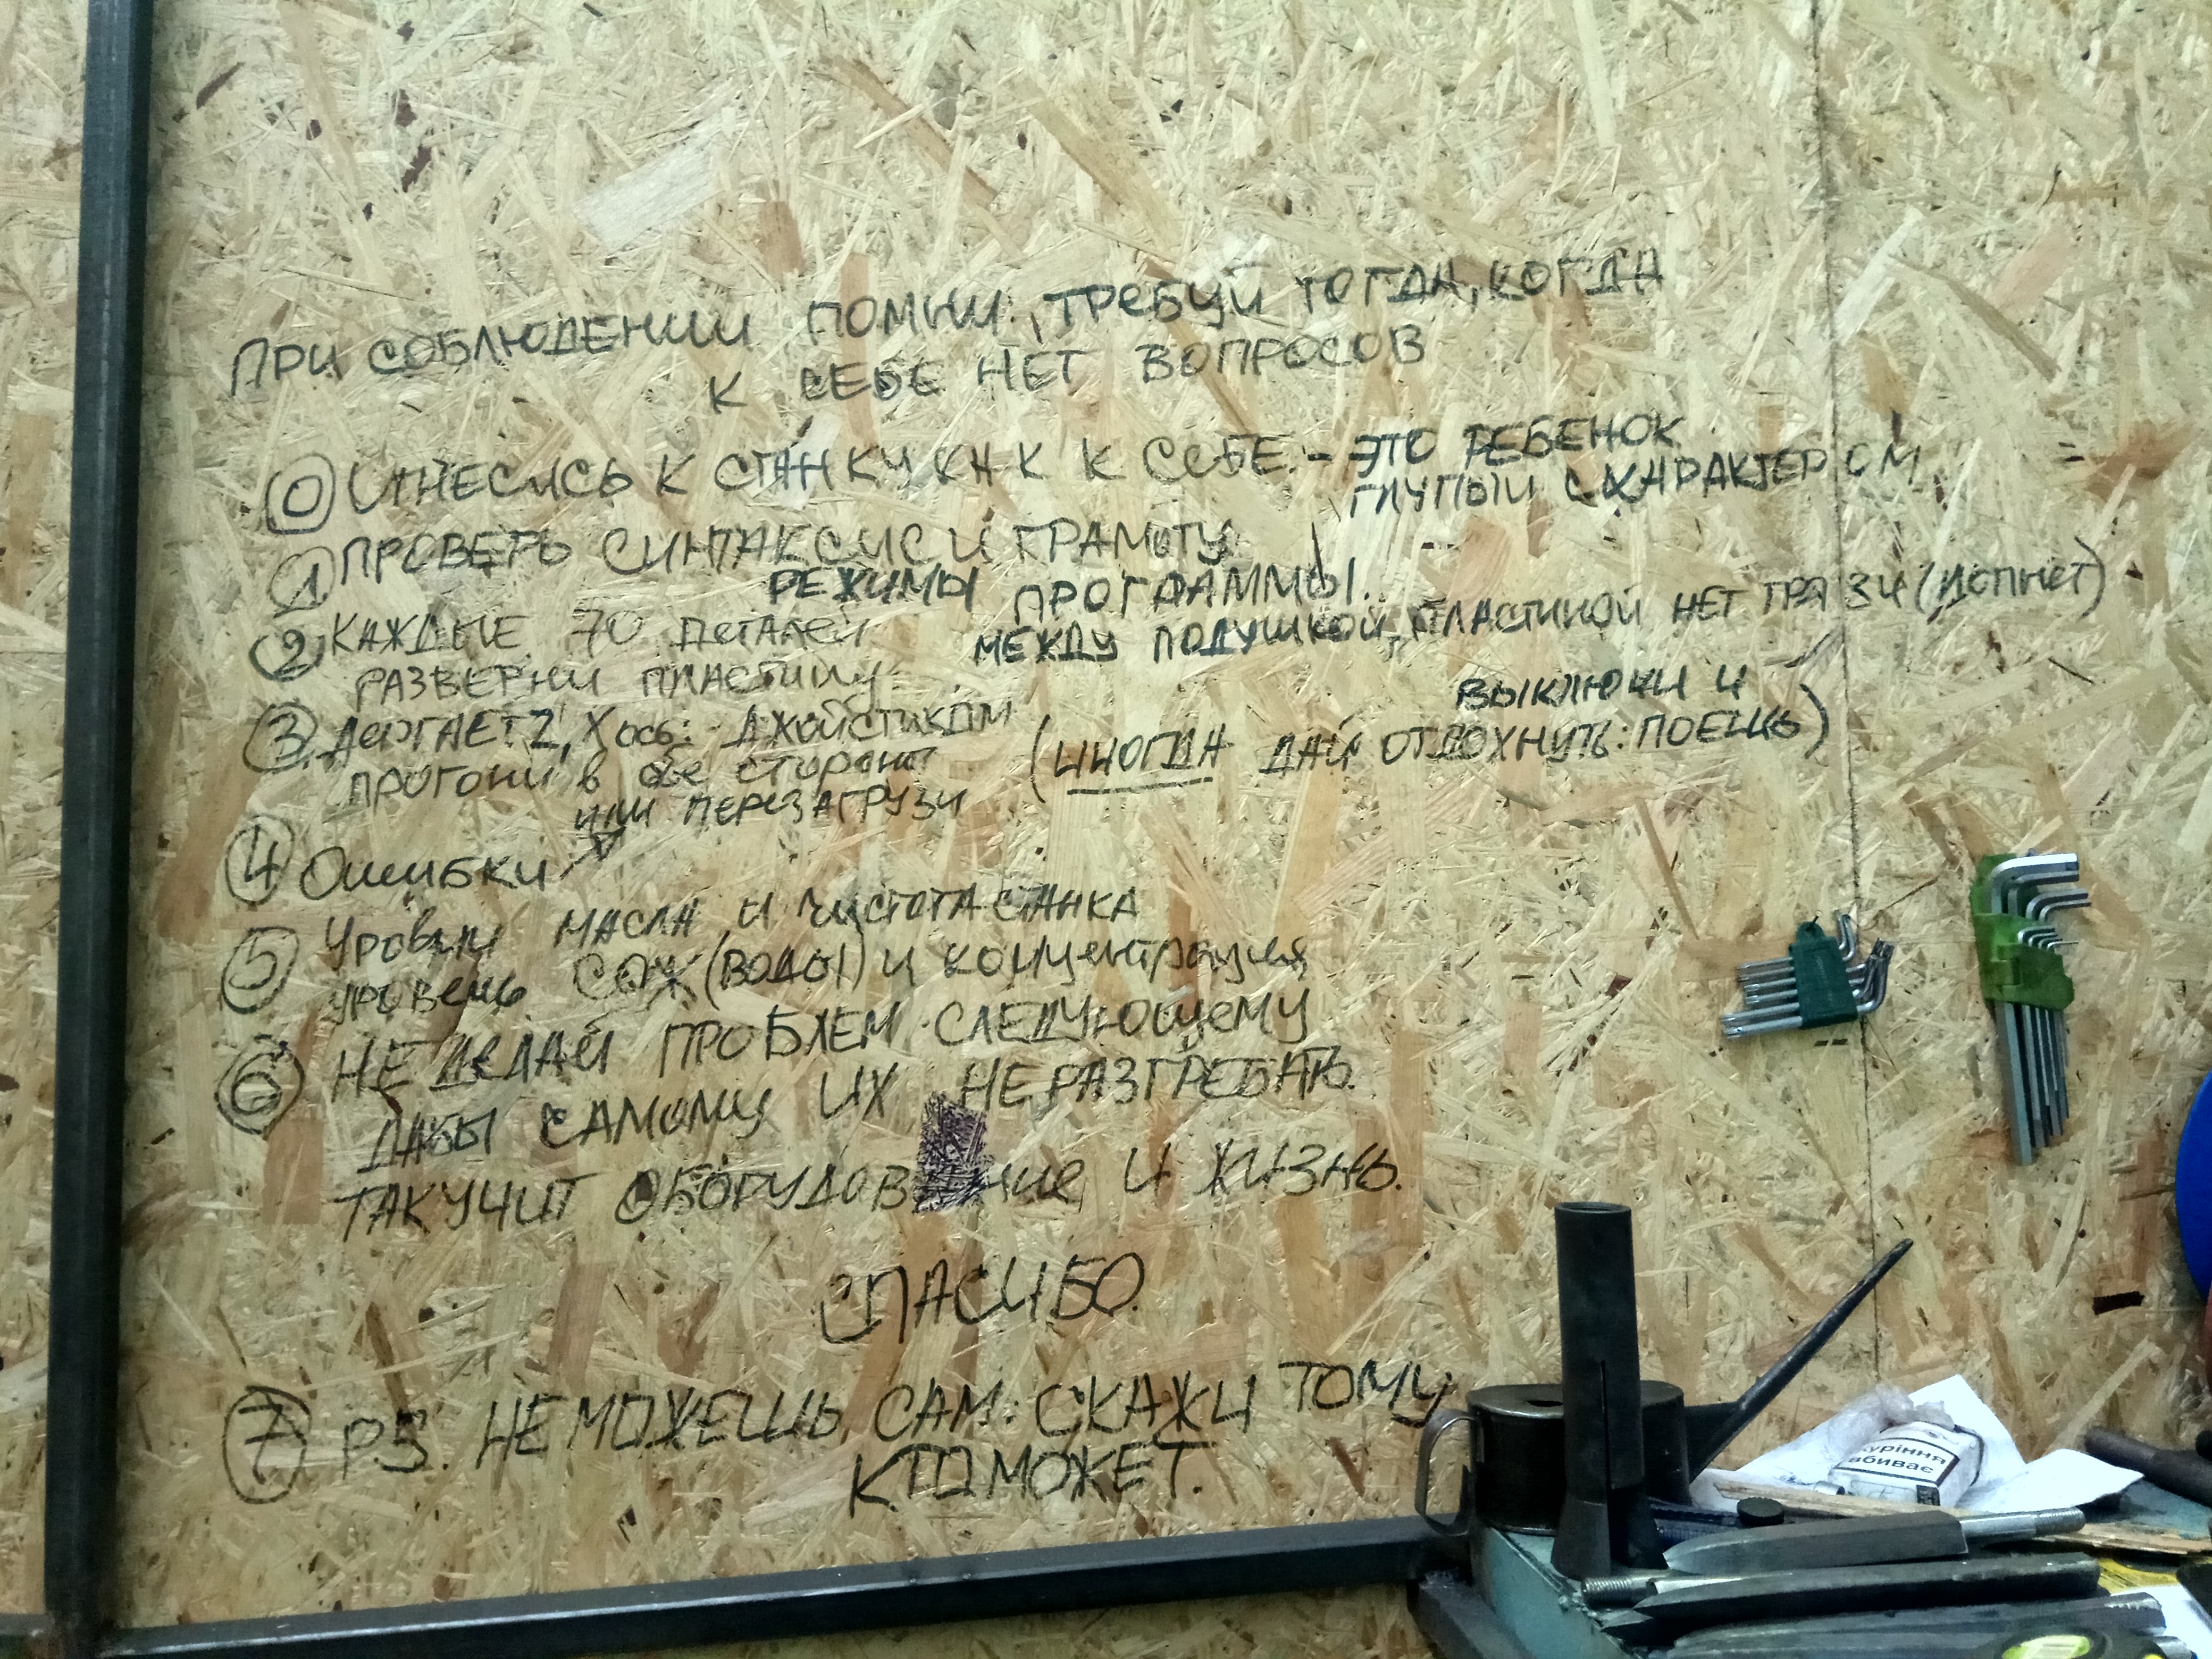 ПРИ СОБЛЮДЕНИИ ПОМНИ, ТРЕБУЙ ТОГДА, КОГДА
К СЕБЕ НЕТ ВОПРОСОВ
0 ОТНЕСИСЬ К СТАНКУ КАК К СЕБЕ. - ЭТО РЕБЕНОК
ГЛУПЫЙ С ХАРАКТЕРОМ
1 ПРОВЕРЬ СИНТАКСИС И ГРАМОТУ
РЕЖИМЫ ПРОГРАММЫ.
2 КАЖДЫЕ 70 ДЕТАЛЕЙ
РАЗВЕРНИ ПЛАСТИНУ
МЕЖДУ ПОДУШКОЙ, ПЛАСТИНОЙ НЕТ ГРЯЗИ (ЛОПНЕТ)
3 ДЕРГАЕТ Z, X ось: ДЖОЙСТИКОМ
ПРОГОНИ в обе стороны
ИЛИ ПЕРЕЗАГРУЗИ
ВЫКЛЮЧИ И
(ИНОГДА ДАЙ ОТДОХНУТЬ: ПОЕШЬ)
4 ОШИБКИ
5 УРОВНИ МАСЛА И ЧИСТОТА СТАНКА
УРОВЕНЬ СОЖ (ВОДЫ) И КОНЦЕНТРАЦИЯ
6 НЕ ДЕЛАЙ ПРОБЛЕМ СЛЕДУЮЩЕМУ
ДАБЫ САМОМУ ИХ НЕ РАЗГРЕБАТЬ.
ТАК УЧИТ ОБОРУДОВАНИЕ И ЖИЗНЬ.
СПАСИБО.
7 P.S. НЕ МОЖЕШЬ САМ: СКАЖИ ТОМУ
КТО МОЖЕТ.
куріння
вбиває